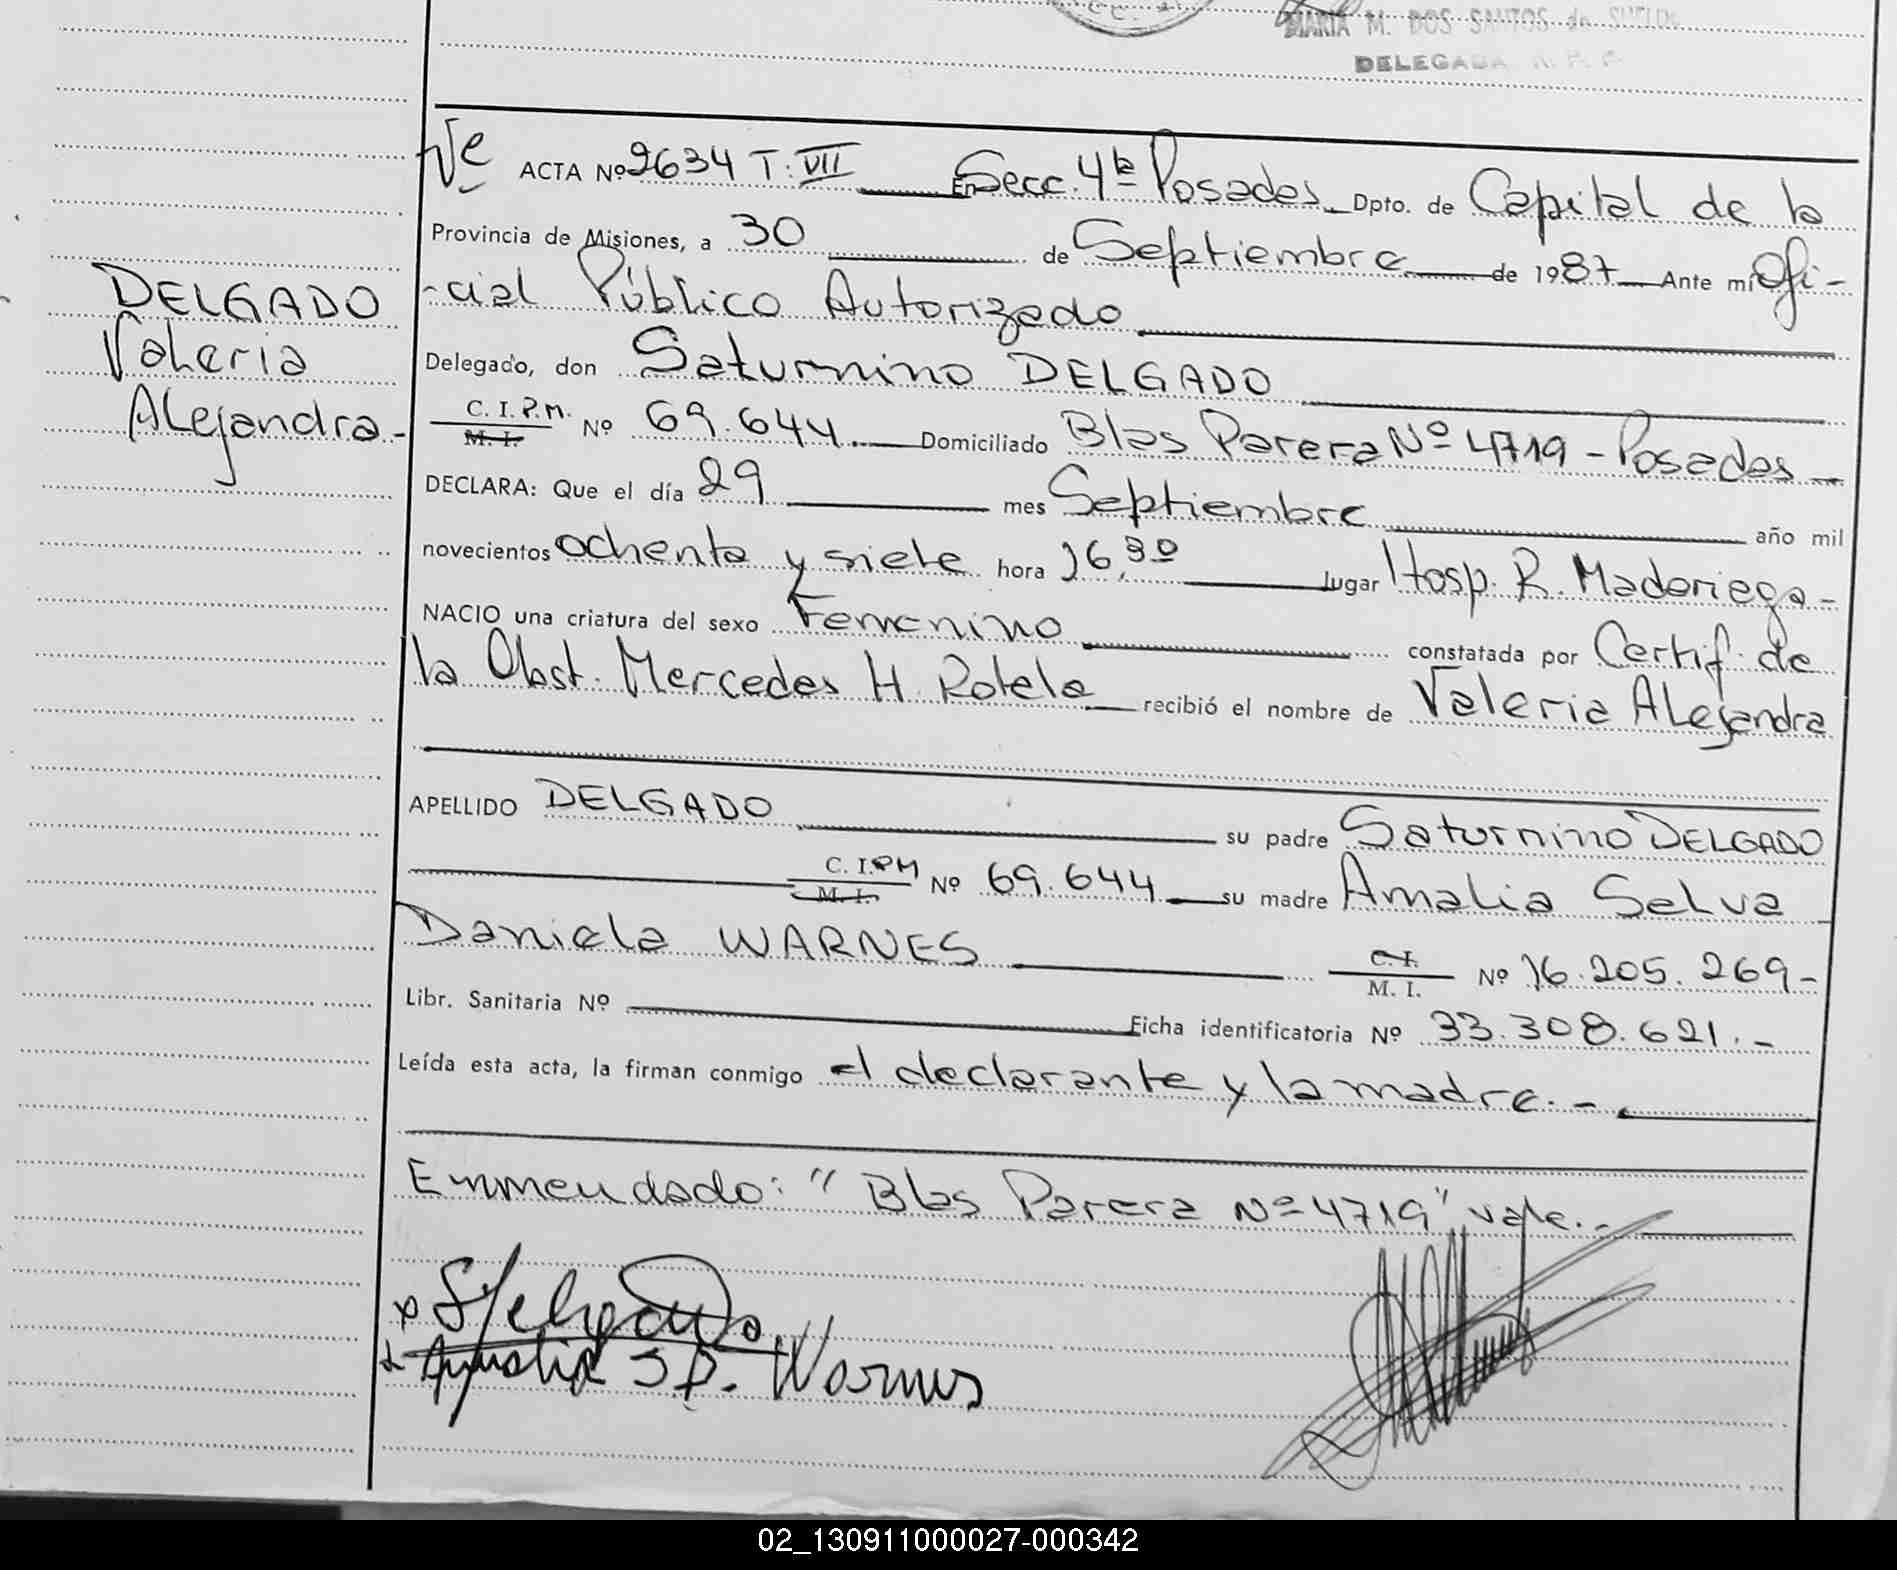 MARIA M. DOS SANTOS de
DELEGADA R. P. C.
Ve ACTA Nº 2634 T: VII En Secc. 4ta Posadas Dpto. de Capital de la
Provincia de Misiones, a 30 de Septiembre de 1987 Ante mí Ofi-
-cial Público Autorizado
Delegado, don Saturnino DELGADO
C. I. P. M. M. I. Nº 69.644 Domiciliado Blas Parera Nº 4719 - Posadas
DECLARA: Que el día 29 mes Septiembre año mil
novecientos ochenta y siete hora 16,30 lugar Hosp. R. Madariaga-
NACIO una criatura del sexo Femenino constatada por Certif. de
la Obst. Mercedes H. Rotela recibió el nombre de Valeria Alejandra
DELGADO
Valeria
Alejandra-
APELLIDO DELGADO su padre Saturnino DELGADO
C. I. P M M. I. Nº 69.644 su madre Amalia Selva
Daniela WARNES C. I. M. I. Nº 16.205.269-
Libr. Sanitaria Nº Ficha identificatoria Nº 33.308.621.-
Leída esta acta, la firman conmigo el declarante y la madre.-
Enmendado: "Blas Parera Nº 4719" vale.-
02_130911000027-000342